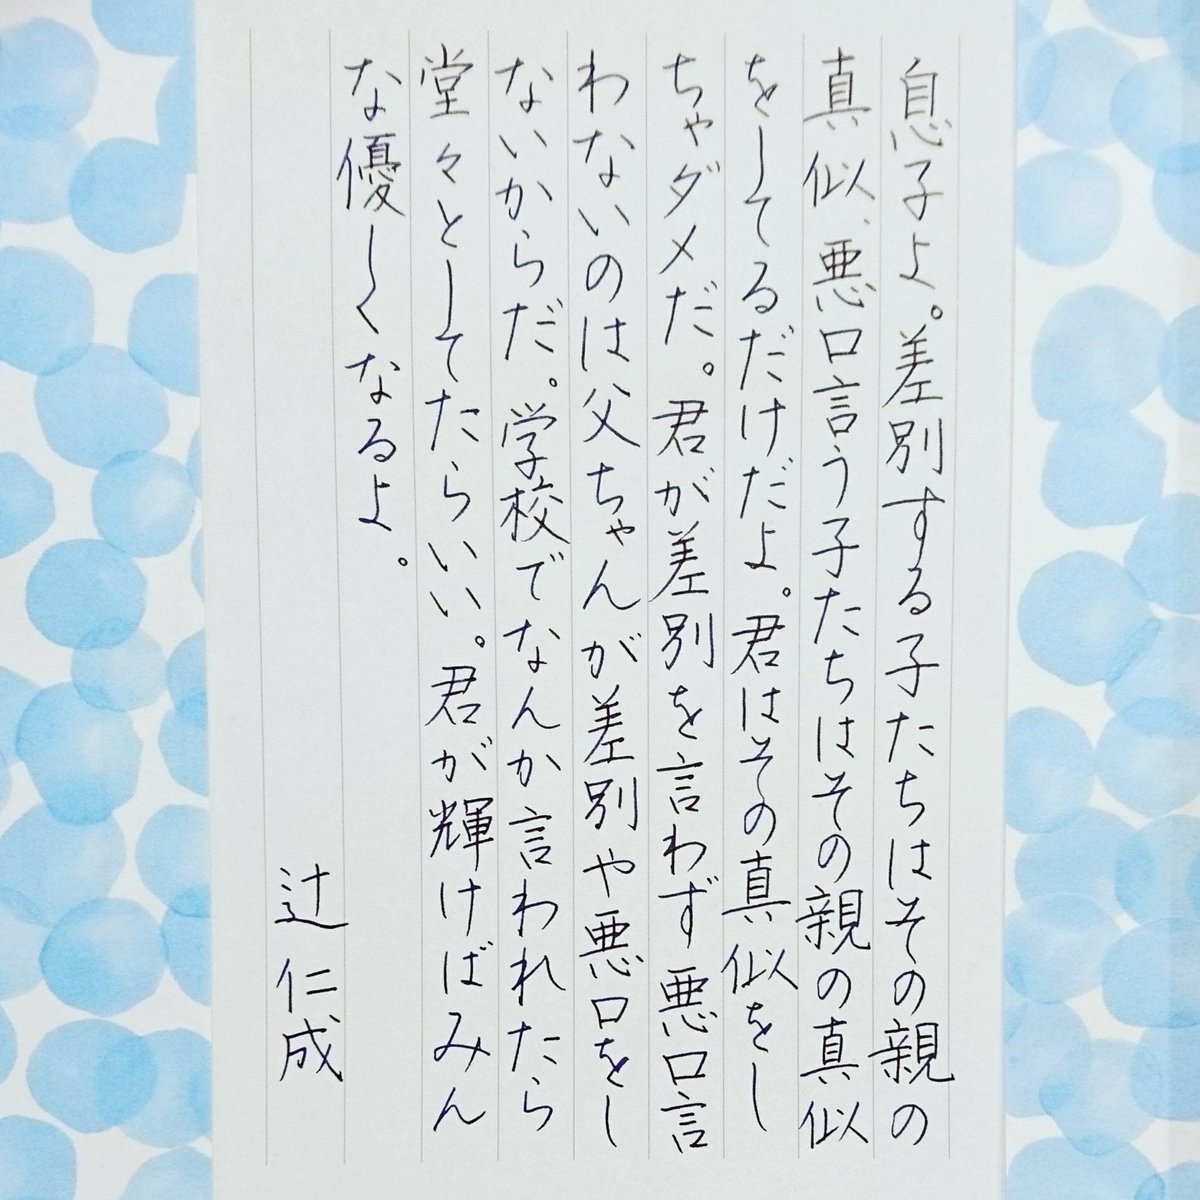 息子よ。差別する子たちはその親の
真似、悪口言う子たちはその親の真似
をしてるだけだよ。君はその真似をし
ちゃダメだ。君が差別を言わず悪口言
わないのは父ちゃんが差別や悪口をし
ないからだ。学校でなんか言われたら
堂々としてたらいい。君が輝けばみん
な優しくなるよ。
辻仁成